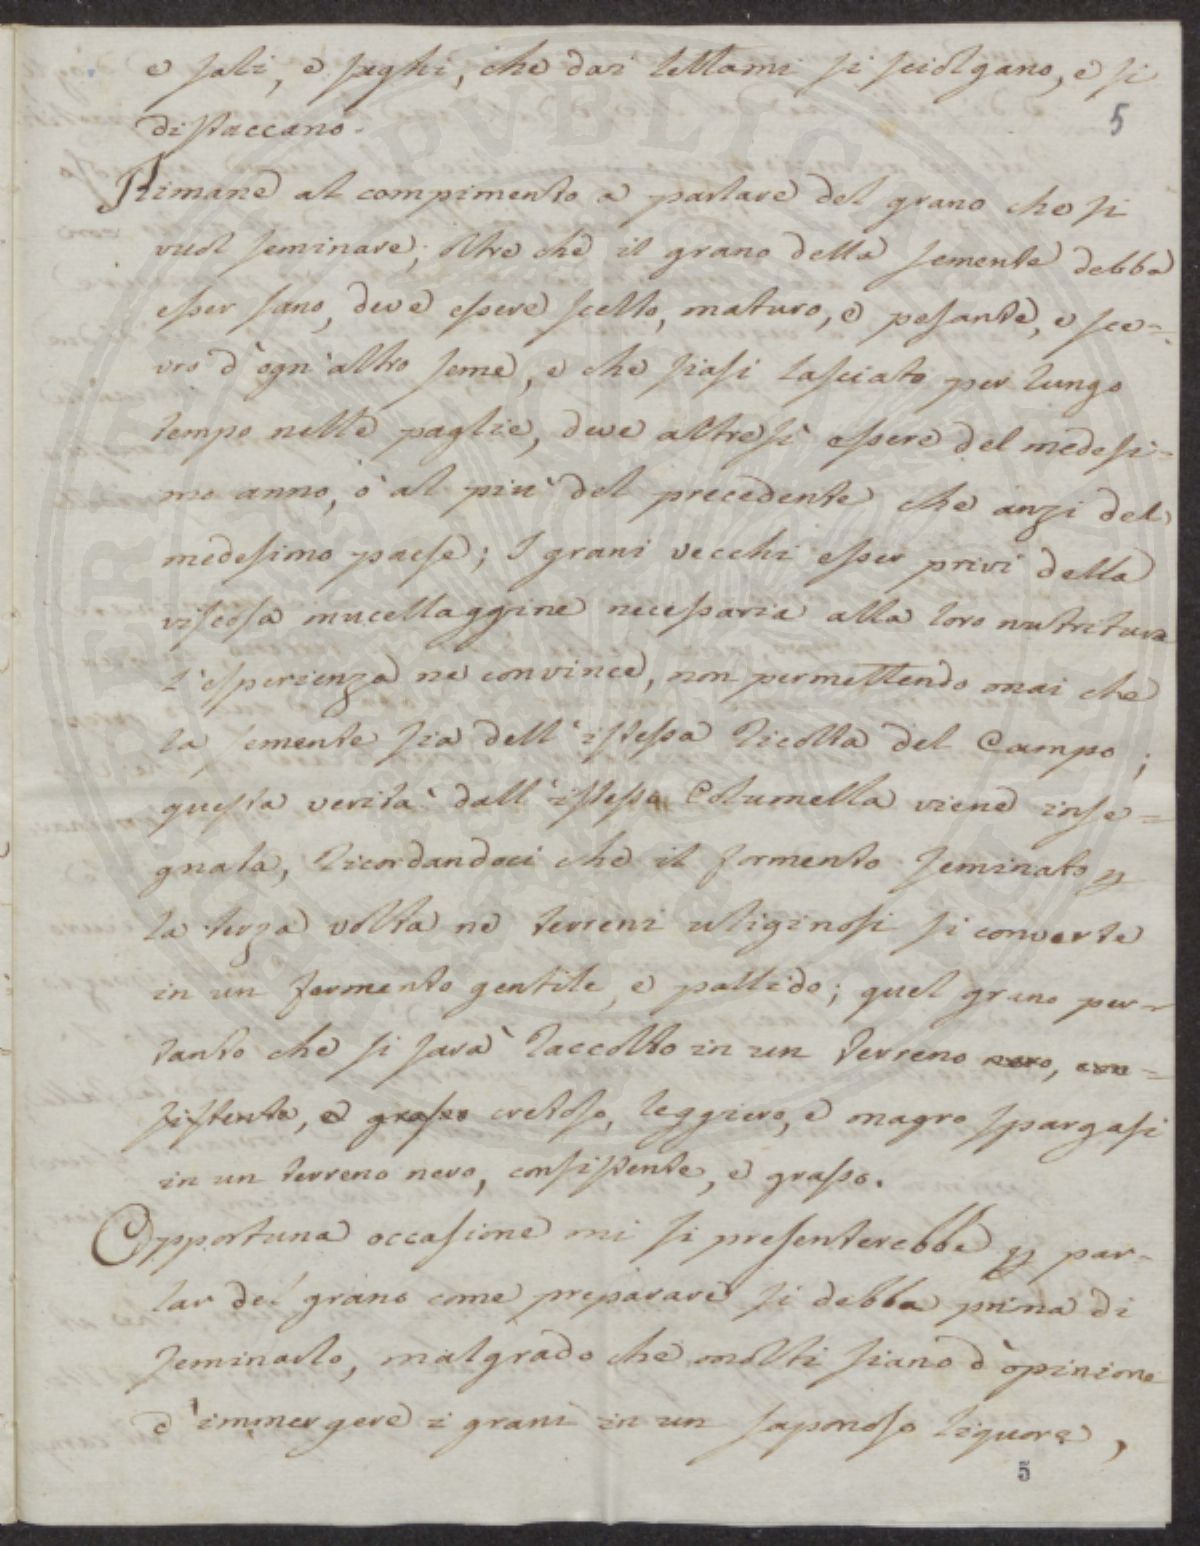 e sali, e sughi, che dai lettami si sciolgano, e si
distaccano.
5
Rimane al compimento a parlare del grano che si
vuol seminare; oltre che il grano della semente debba
esser sano, deve essere scelto, maturo, e pesante, e sce=
vro d'ogn'altro seme, e che siasi lasciato per lungo
tempo nelle paglie, deve altresì essere del medesi=
mo anno, ò al più del precedente che anzi del
medesimo paese; I grani vecchi esser privi della
viscosa mucellaggine necessaria alla loro nutritura
l'esperienza ne convince, non permettendo mai che
la semente sia dell'istessa ricolta del Campo;
questa verità dall'istesso Columella viene inse=
gnata, ricordandoci che il formento seminato p
la terza volta ne terreni uliginosi si converte
in un formento gentile, e pallido; quel grano per=
tanto che si sarà raccolto in un terreno nero, con=
sistente, e grasso cretoso, leggiero, e magro spargasi
in un terreno nero, consistente, e grasso.
Opportuna occasione mi si presenterebbe p par=
lar del grano come preparare si debba prima di
seminarlo, malgrado che molti siano d'opinione
d'immergere i grani in un saponoso liquore,
5